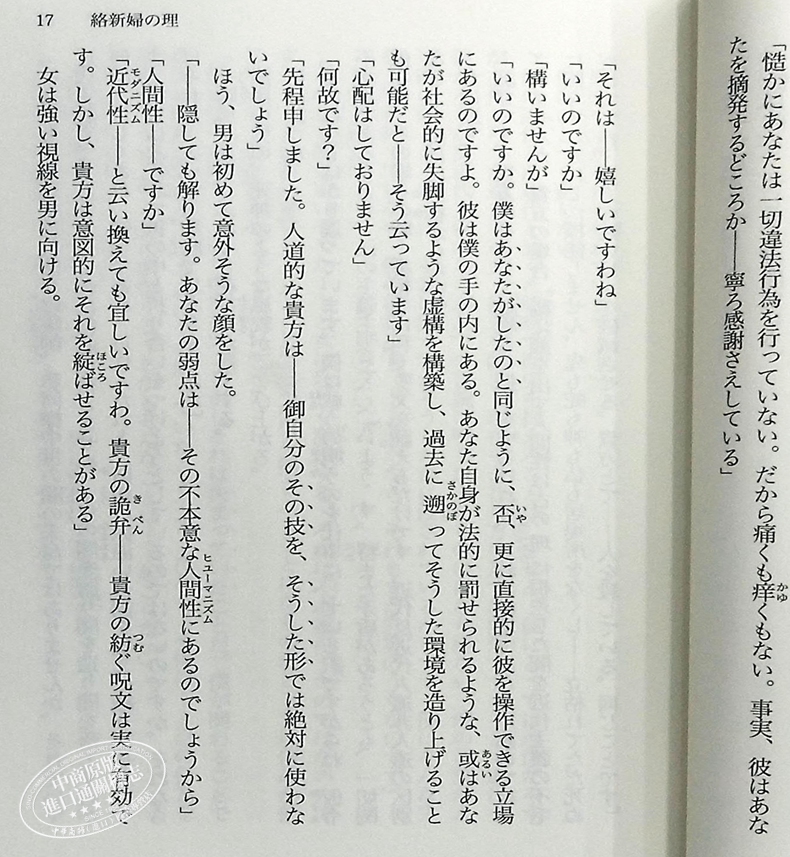 「慥かにあなたは一切違法行為を行っていない。だから痛くも痒くもない。事実、彼はあな
たを摘発するどころか――寧ろ感謝さえしている」
17　絡新婦の理
「それは――嬉しいですわね」
「いいのですか」
「構いませんが」
「いいのですか。僕はあなたがしたのと同じように、否、更に直接的に彼を操作できる立場
にあるのですよ。彼は僕の手の内にある。あなた自身が法的に罰せられるような、或はあな
たが社会的に失脚するような虚構を構築し、過去に遡ってそうした環境を造り上げること
も可能だと――そう云っています」
「心配はしておりません」
「何故です？」
「先程申しました。人道的な貴方は――御自分のその技を、そうした形では絶対に使わな
いでしょう」
ほう、男は初めて意外そうな顔をした。
「――隠しても解ります。あなたの弱点は――その不本意な人間性にあるのでしょうから」
「人間性――ですか」
「近代性――と云い換えても宜しいですわ。貴方の詭弁――貴方の紡ぐ呪文は実に有効で
す。しかし、貴方は意図的にそれを綻ばせることがある」
女は強い視線を男に向ける。
かゆ
いや
さかのぼ
あるい
ヒューマニズム
モダニズム
きべん
つむ
ほころ
中商原版
進口通關標志